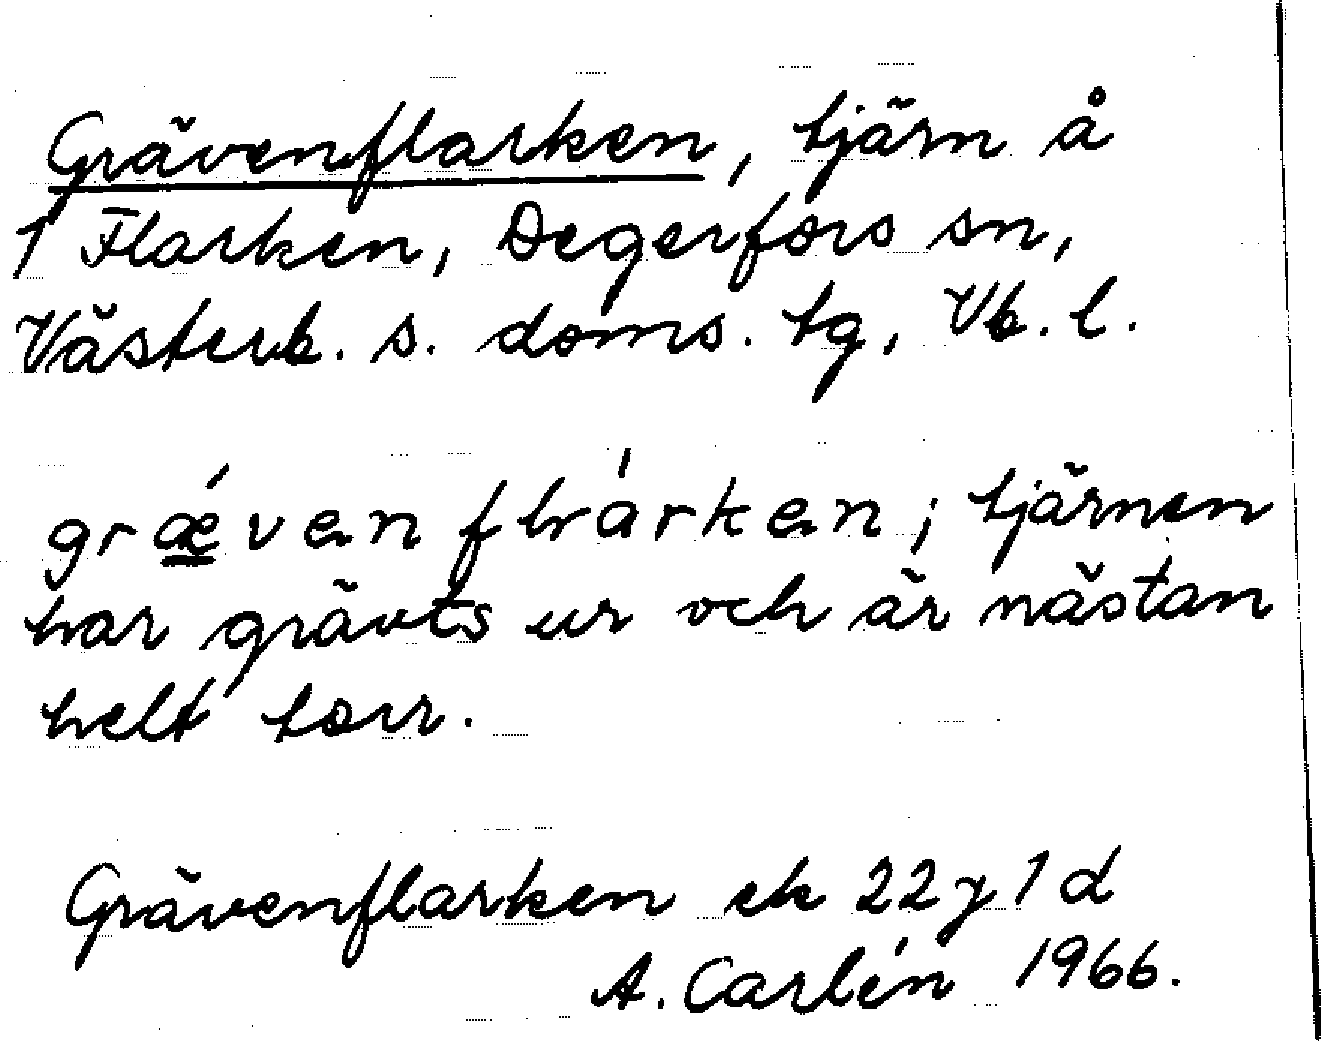 Grävenflarken, tjärn å
1 Flarken, Degerfors sn,
Västerb. s. doms. tg, Vb. l.
grǽven flrárken; tjärnen
har grävts ur och är nästan
helt torr.
Grävenflarken ek 22 y 1 d
A. Carlén 1966.